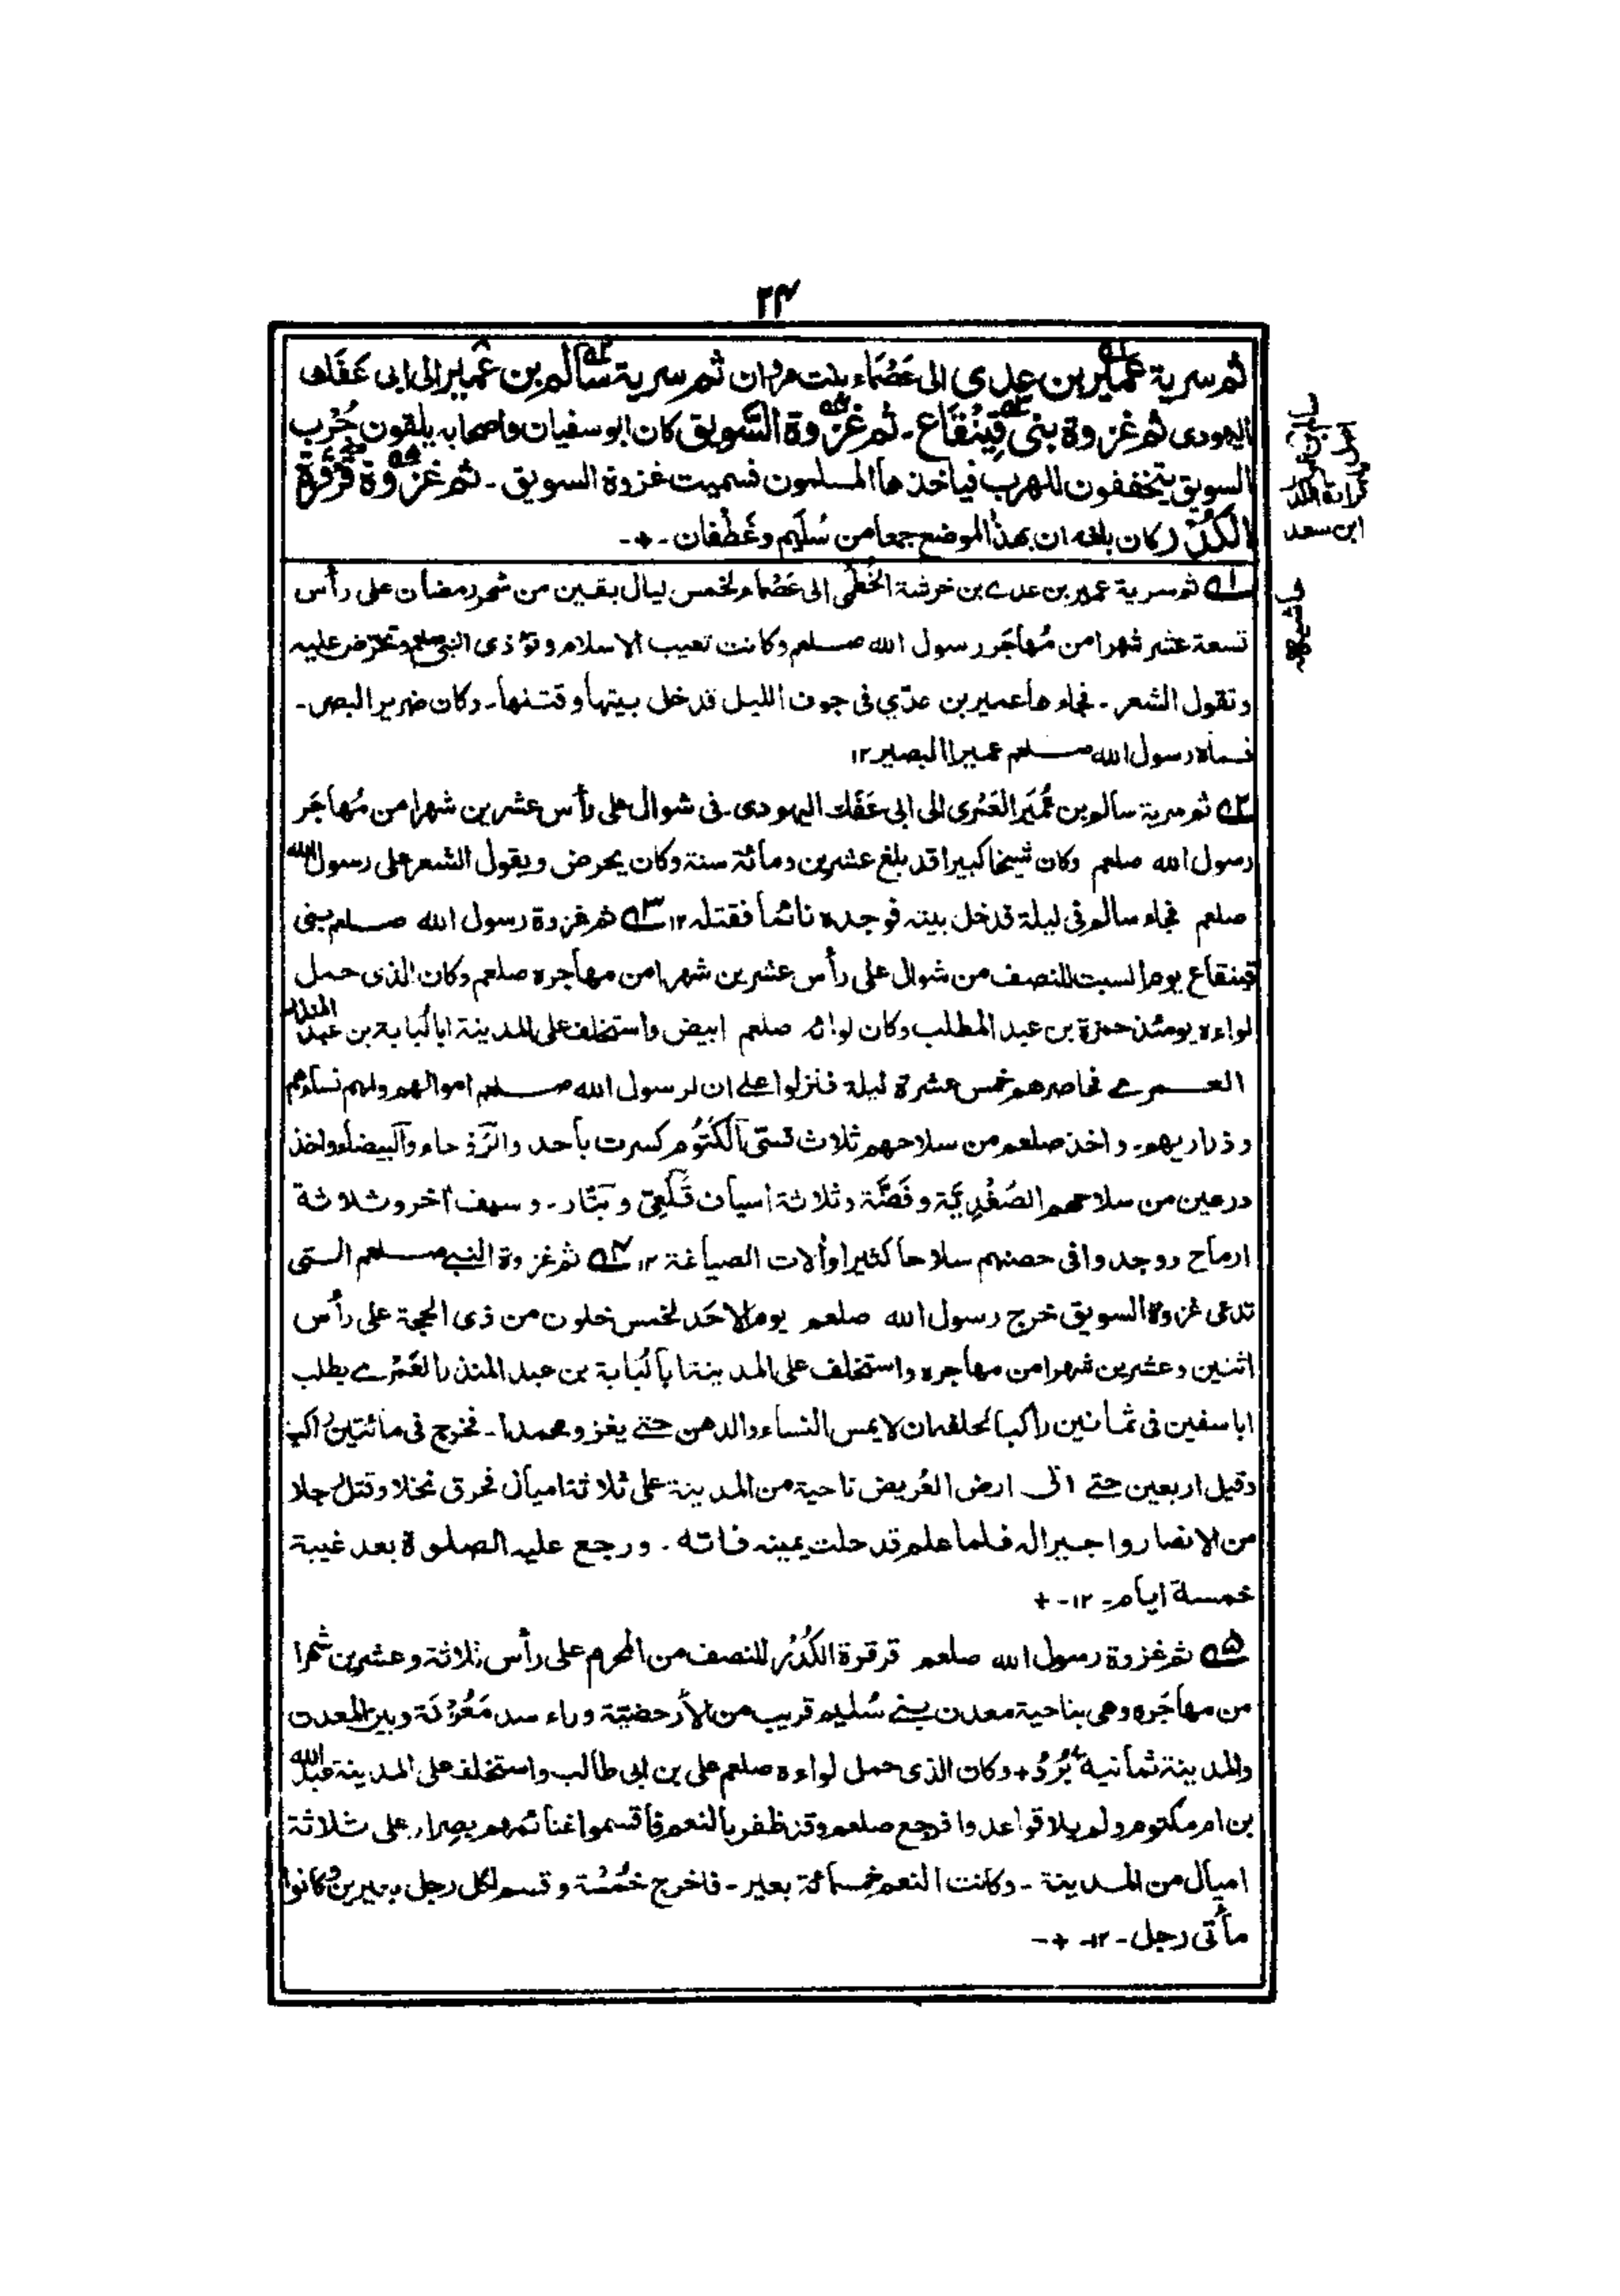 ٢٤
ثم سرية عمير بن عدى الى عَصْمَاء بنت مروان ثم سرية سالم بن عُمَير الى ابى عَفَك
اليهودى ثم غزوة بنى قَينُقَاع۔ ثم غزوة السَّويق كان ابو سفيان واصحابه يلقون جُرُب
السويق يتخففون للهرب فياخذها المسلمون فسميت غزوة السويق۔ ثم غزوة قَرْقَرَة
الكُدْرِ وكان بلغه ان بهذا الموضع جمعا من سُلَيم وغَطْفان۔+۔
ابن سعد
حاشيه
١ه ثم سرية عمير بن عدے بن خرشة الخَطْمى الى عَصْمَاء لخمس ليال بقين من شهر رمضان على رأس
تسعة عشر شهرا من مُهاجَر رسول الله صلعم وكانت تعيب الاسلام وتؤذى النبى صلعم وتحرض عليه
وتقول الشعر۔ فجاءها عمير بن عدّي فى جوف الليل فدخل بيتها وقتلها۔ وكان ضرير البصر۔
فسماه رسول الله صلعم عميرا البصير ١٢
٢ه ثم سرية سالم بن عُمَير العَمْرى الى ابى عَفَك اليهودى۔ فى شوال على رأس عشرين شهرا من مُهاجَر
رسول الله صلعم وكان شيخا كبيرا قد بلغ عشرين ومائة سنة وكان يحرض ويقول الشعر على رسول الله
صلعم فجاء سالم فى ليلة فدخل بيته فوجده نائما فقتله ١٢ ٣ه ثم غزوة رسول الله صلعم بنى
قينقاع يوم السبت للنصف من شوال على رأس عشرين شهرا من مهاجره صلعم وكان الذى حمل
لواءه يومئذ حمزة بن عبد المطلب وكان لوائه صلعم ابيض واستخلف على المدينة ابا لُبابة بن عبد المنذر
العمرے فحاصرهم خمس عشرة ليلة فنزلوا على ان لرسول الله صلعم اموالهم ولهم نساؤهم
وذراريهم۔ واخذ صلعم من سلاحهم ثلاث قسى الكَتُوم كسرت بأحد والرَّوحاء والبيضاء واخذ
درعين من سلاحهم الصُغْدِيَّة وفَضَّة وثلاثة اسياف قَلَعِيّ وبَتّار۔ وسيف آخر وثلاثة
ارماح ووجدوا فى حصنهم سلاحا كثيرا وآلات الصياغة ١٢ ٤ه ثم غزوة النبے صلعم التى
تدعى غزوة السويق خرج رسول الله صلعم يوم الاحَد لخمس خلون من ذى الحجة على رأس
اثنين وعشرين شهرا من مهاجره واستخلف على المدينة ابا لُبَابة بن عبد المنذر العَمْرے يطلب
ابا سفين فى ثمانين راكبا لحلفه ان لا يمس النساء والدهن حتے يغزو محمدا۔ فخرج فى مائتين راكب
وقيل اربعين حتے اتى ارض العُريض ناحية من المدينة على ثلاثة اميال فحرق نخلا وقتل رجلا
من الانصار واجيرا له فلما علم قد حلت يمينه فاته۔ ورجع عليه الصلوة بعد غيبة
خمسة ايام۔ ١٢۔ +
٥ه ثم غزوة رسول الله صلعم قرقرة الكُدْرِ للنصف من المحرم على رأس ثلاثة وعشرين شهرا
من مهاجَره وهى بناحية معدن بنے سُليم قريب من الأرحضيّة وراء سد مَعُوْنَة وبين المعدن
والمدينة ثمانية بُرُد+ وكان الذى حمل لواءه صلعم على بن ابى طالب واستخلف على المدينة عبد الله
بن ام مكتوم ولم يلاقوا عدوا فرجع صلعم وقد ظفر بالنعم فاقتسموا غنائمهم بصِرار على ثلاثة
اميال من المدينة ۔ وكانت النعم خمسمائة بعير ۔ فاخرج خُمُسَه وقسم لكل رجل بعيرين وكانوا
مأتى رجل۔ ١٢۔ +۔